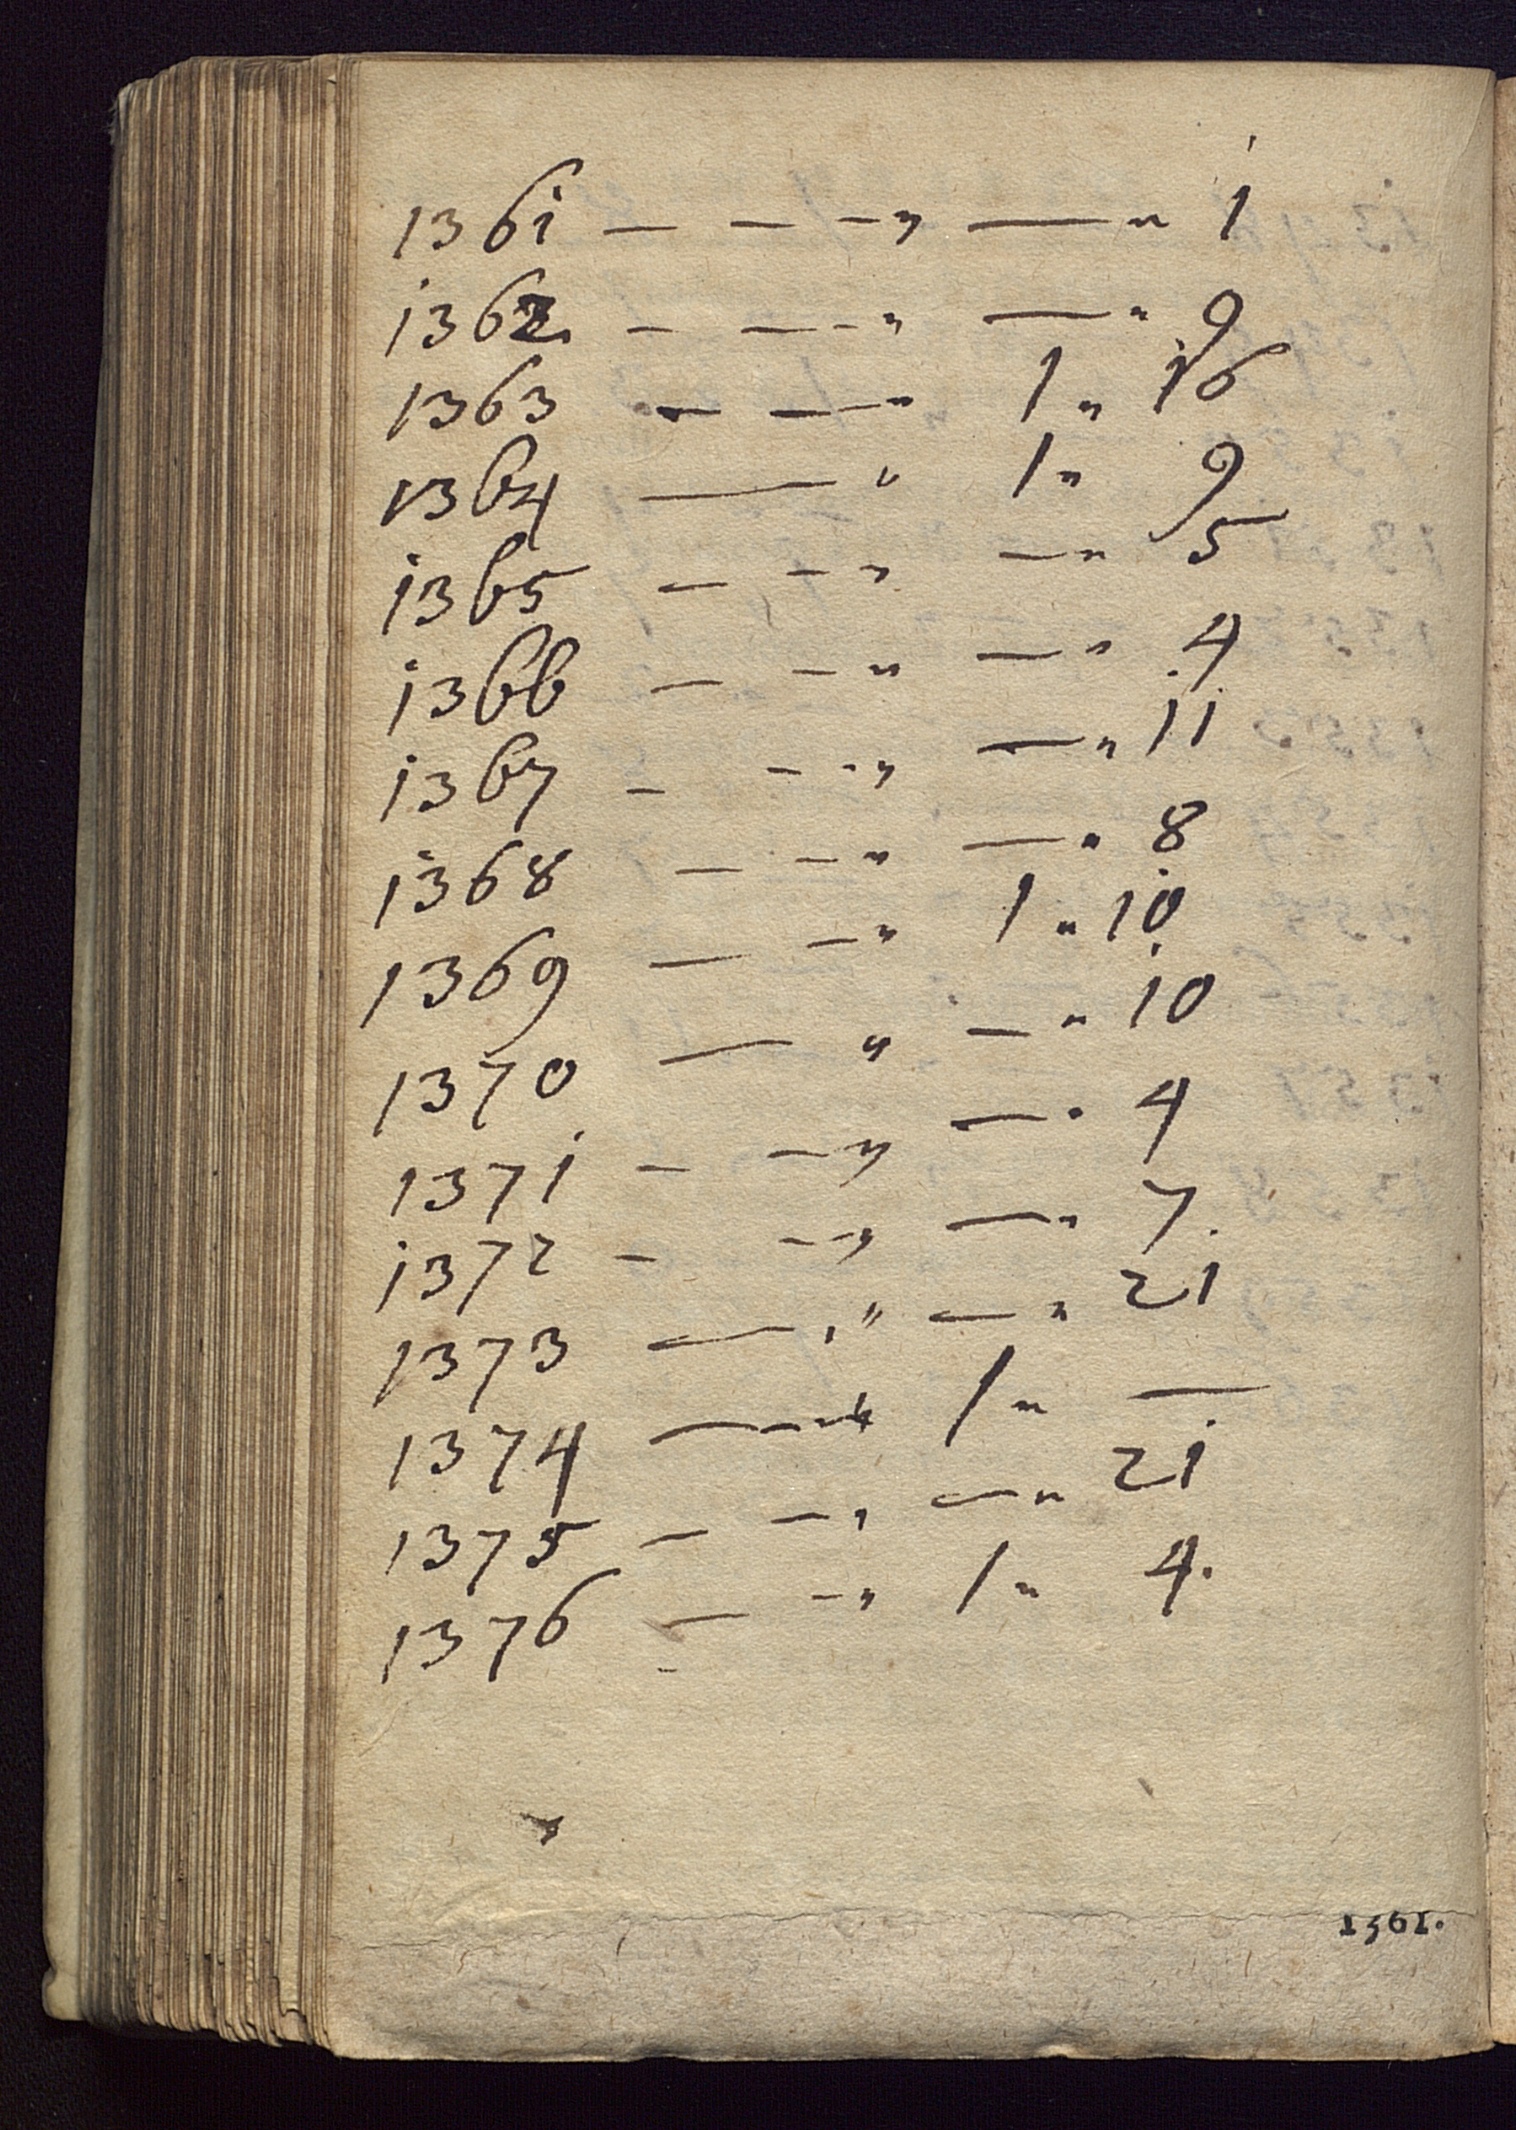 1361 — — — „ — „ 1
1362 — — - „ — „ 9
1363 — — „ 1 „ 16
1364 — „ 1 „ 9
1365 — - „ — „ 5
1366 — - „ — „ 4
1367 — - - „ — „ 11
1368 — - „ — „ 8
1369 — - „ 1 „ 10
1370 — „ — „ 10
1371 — — „ — „ 4
1372 — — „ — „ 7.
1373 — „ — „ 21
1374 — - „ 1 „ —
1375 — — „ — „ 21
1376 — - „ 1 „ 4.
1361.